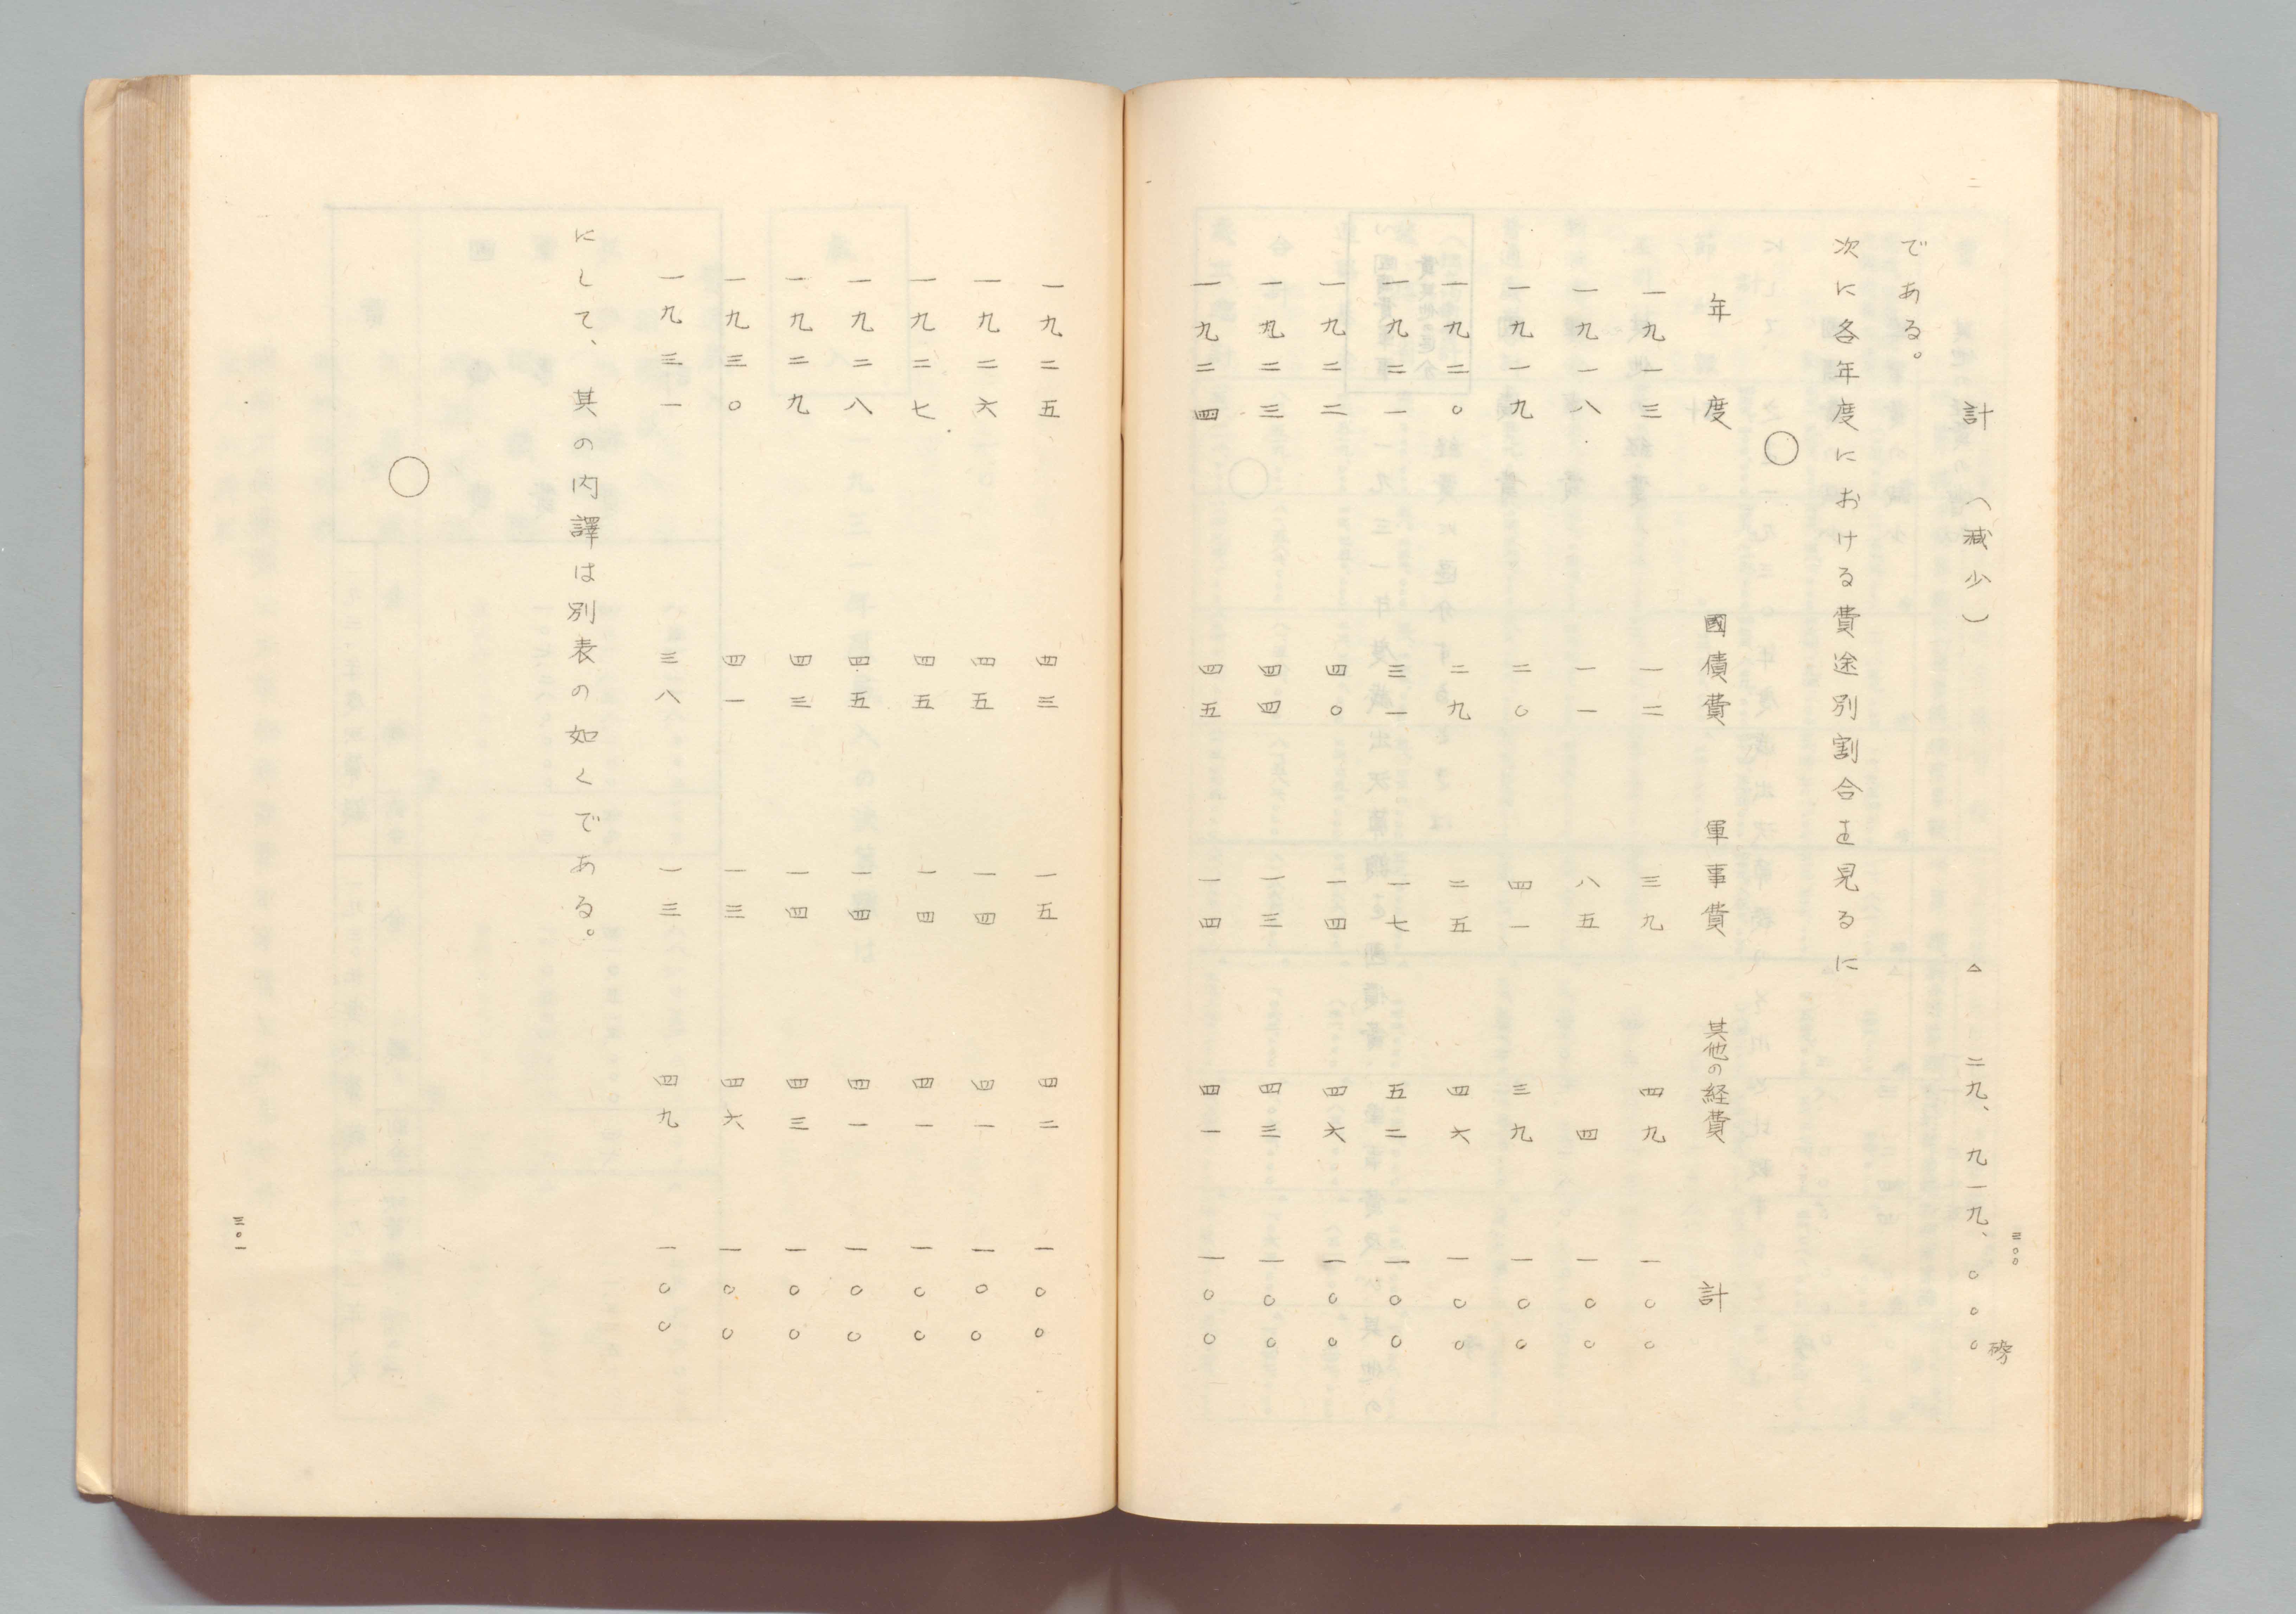 三〇〇
計　（減少）　△　二九、九一九、〇〇〇磅
である。
次に各年度における費途別割合を見るに
○
年度　國債費　軍事費　其他の経費　計
一九一三　一二　三九　四九　一〇〇
一九一八　一一　八五　四　一〇〇
一九一九　二〇　四一　三九　一〇〇
一九二〇　二九　二五　四六　一〇〇
一九二一　三一　一七　五二　一〇〇
一九二二　四〇　一四　四六　一〇〇
一九二三　四四　一三　四三　一〇〇
一九二四　四五　一四　四一　一〇〇
一九二五　四三　一五　四二　一〇〇
一九二六　四五　一四　四一　一〇〇
一九二七　四五　一四　四一　一〇〇
一九二八　四五　一四　四一　一〇〇
一九二九　四三　一四　四三　一〇〇
一九三〇　四一　一三　四六　一〇〇
一九三一　三八　一三　四九　一〇〇
にして、其の内譯は別表の如くである。
○
三〇一